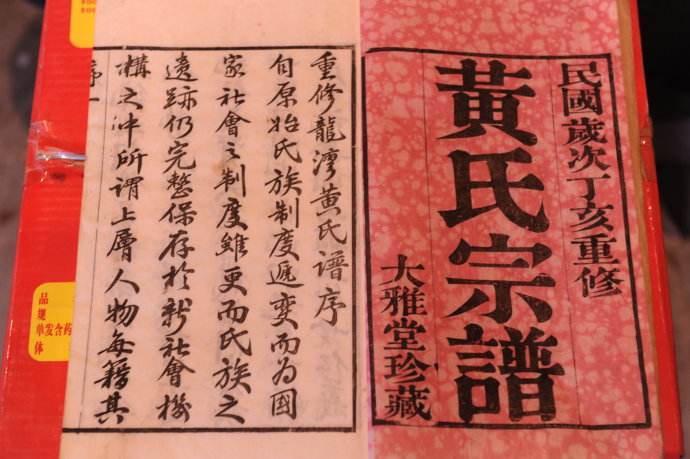 民國歲次丁亥重修
黃氏宗譜
大雅堂珍藏
重修龍灣黃氏譜序
自原始氏族制度遞變而為國
家社會之制度雖更而氏族之
遺跡仍完整保存於新社會機
構之冲所謂上層人物每籍其
序一
品
规
单发含药
体